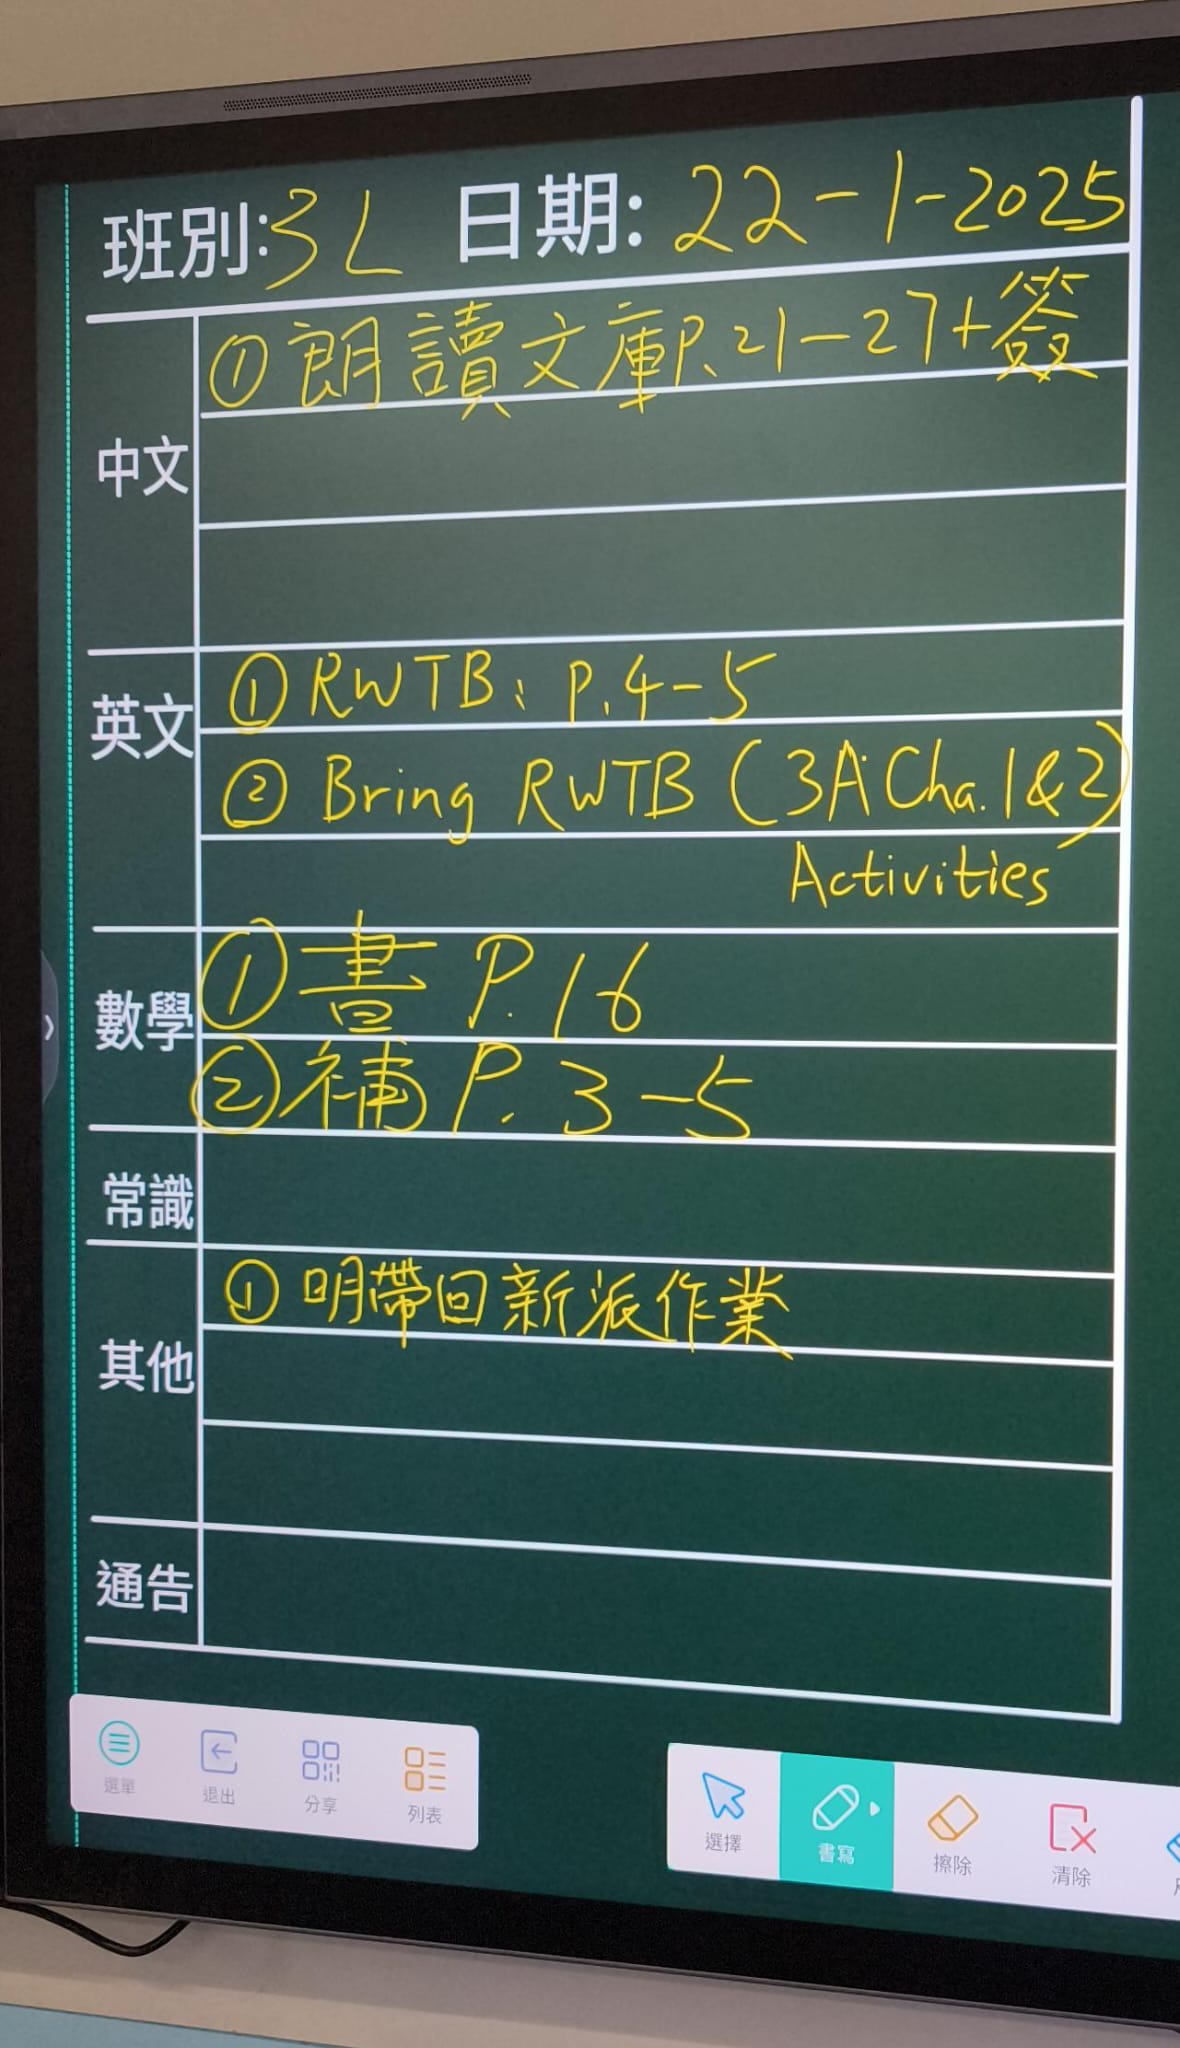 班別:3L 日期: 22-1-2025
中文
①朗讀文庫P.21-27+簽
英文
①RWTB: P.4-5
② Bring RWTB (3A Cha.1&2)
Activities
數學
①書 P.16
②補 P.3-5
常識
其他
①明帶回新派作業
通告
選單 退出 分享 列表
選擇 書寫 擦除 清除